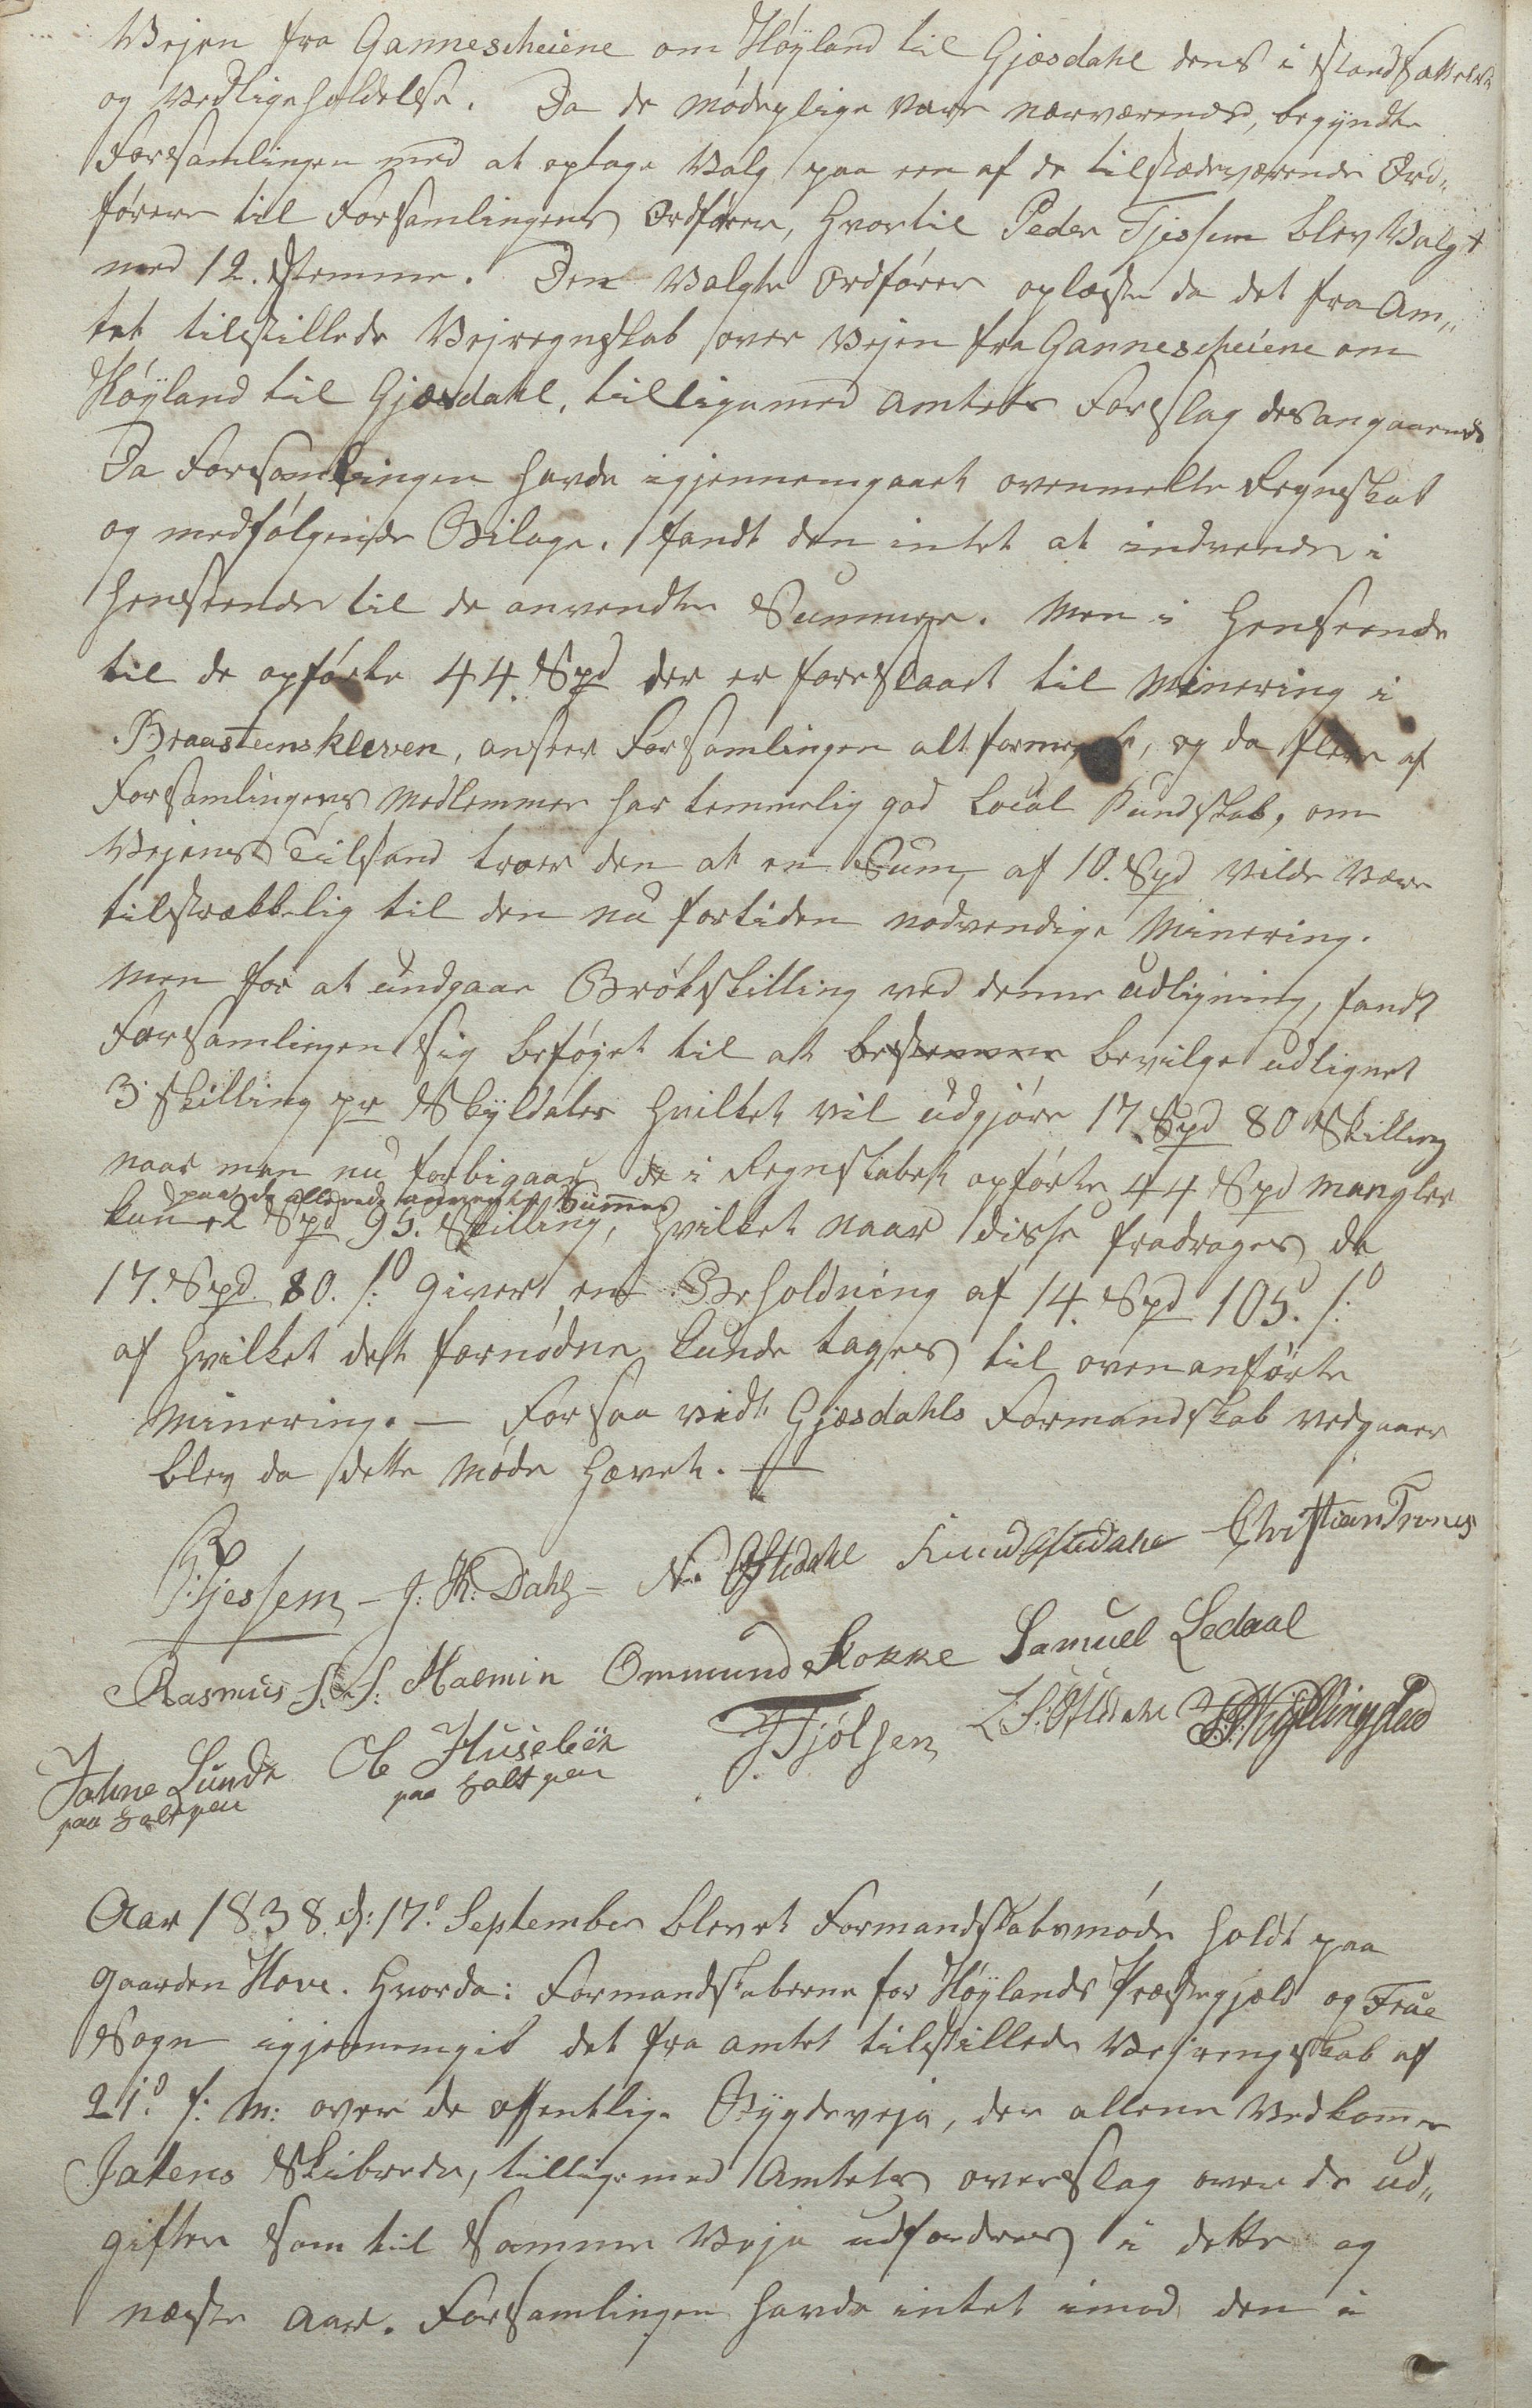 Vejen fra Gannescheiene om Høyland til Gjæsdahl dens i Standsættelse
og Vedligeholdelse. Da de mødeplige var nærværende, begyndte
Forsamlingen med at optage Valg paa een af de tilstædeværende Ord„
førere til Forsamlingens Ordfører, hvortil Peder Tjessem blev Valgt
med 12. Stemme. Den Valgte Ordfører oplæste da det fra Am„
tet tilstillede Vejregnskab over Vejen fra Gannescheiene om
Høyland til Gjæsdahl, tilligemed Amtets Forslag desangaaende
Da Forsamlingen havde igjennemgaaet ovenmelte Regnskab
og medfølgende Bilage, fandt den intet at indvende i
henseende til de anvendte Summer. Men i Henseende
til de opførte 44. Spd der er foreslaaet til Minering i
Braasteinskleven, anseer Forsamlingen alt formeget, og da flere af
Forsamlingens Medlemmer har temmelig god Local Kundskab, om
Vejens Tilstand troer den at en Sum, af 10. Spd vilde være
tilstrækkelig til den nu fortiden nødvendige Minering.
Men for at undgaae Brøkskilling ved denne udligning, fandt
Forsamlingen sig beføyet til at bestemme bevilge udlignet
3 Skilling pr Skyldaler hvilket vil udgjøre 17 Spd 80 Skilling
naar man nu forbigaar de i Regnskabet opførte 44 Spd mangler
paa de allerede anvendte Summer
kun 2 Spd 95. Skilling, hvilket naar disse fradrages de
17. Spd. 80. s. giver en Beholdning af 14. Spd 105. s.
af hvilket det fornødne kunde tages til ovenanførte
Minering. — For saa vidt Gjæsdahls Formandskab vedgaaer
blev da dette Møde hævet. —
P Tjessem – J: K: Dahl – N. Ollsdahl Knud Christian Trones
Rasmus S. S: Malmin Ommund Skokke Samuel Ledaal
Tahne Lunde Ole Husebøe J Tjølsen L S: J. Kyllingstad
paa halt pen paa halt pen
Aar 1838. d: 17. September blevet Formandskabsmøde holdt paa
Gaarden Hove. Hvorda: Formandskaberne for Høylands Præstegjæld og Frue
Sogn igjennemgik det fra Amtet tilstillede Vejregnskab af
21. f: m: over de offentlige Bygdeveje, der allene Vedkommer
Jatens Skibrede, tilligemed Amtets overslag over de ud„
gifter som til samme Veje udfordres i dette og
næste Aar. Forsamlingen havde intet imod den i